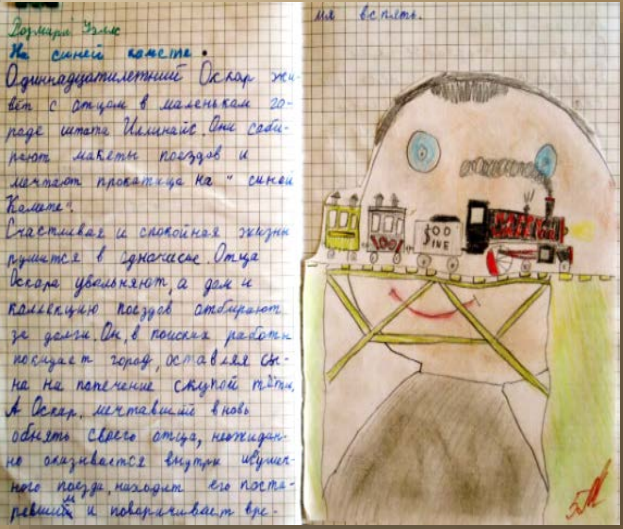 Розмари Уэллс
На синей комете.
Одиннадцатилетний Оскар жи-
вёт с отцом в маленьком го-
роде штата Иллинойс. Они соби-
рают макеты поездов и
мечтают прокатица на "синей
Комете".
Счастливая и спокойная жизнь
рушится в одночасье. Отца
Оскара увольняют, а дом и
коллекцию поездов отбирают
за долги. Он, в поисках работы
покидает город, оставляя сы-
на на попечение скупой тёти.
А Оскар, мечтавший вновь
обнять своего отца, неожидан-
но оказывается внутри игушеч-
ного поезда, находит его поста-
ревшим и поворачивает вре-
мя вспять.
SOO
LINE